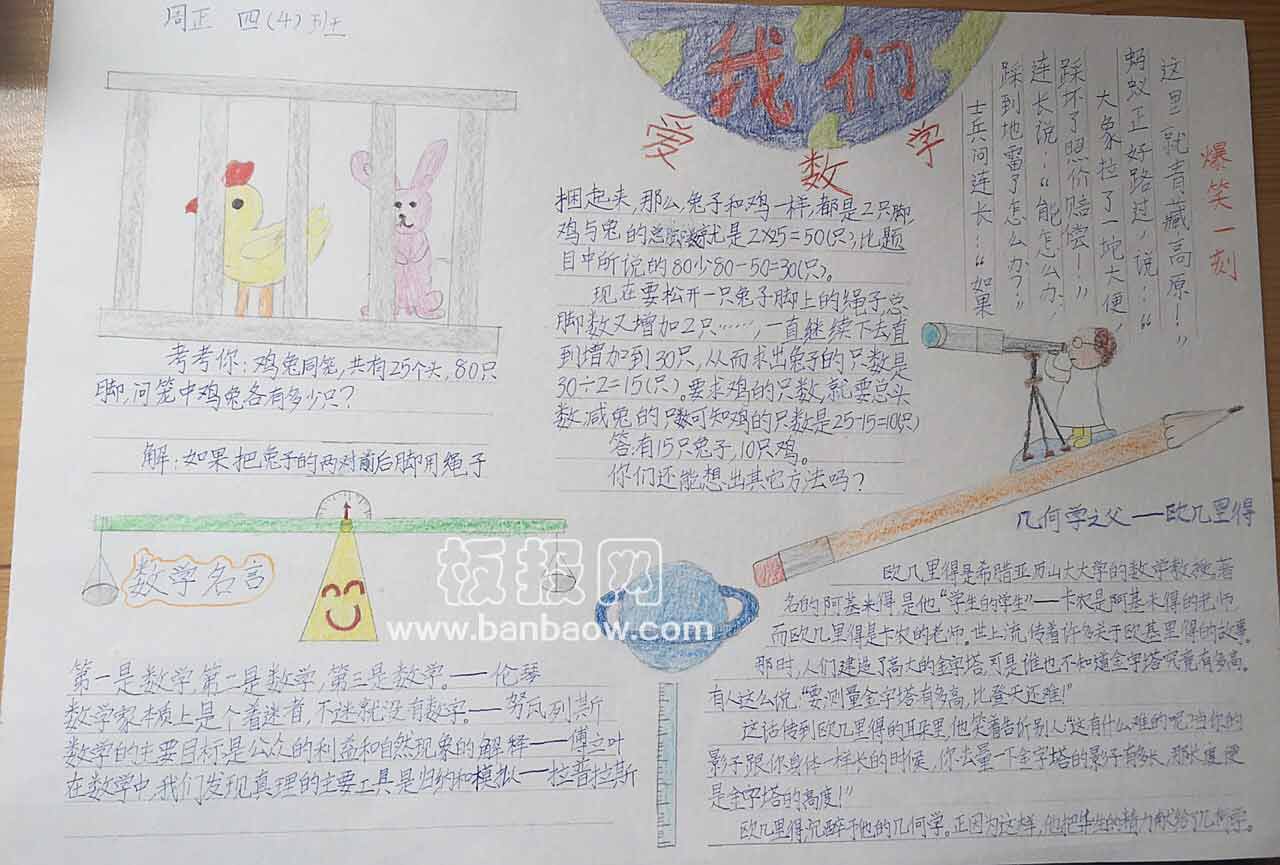 周正 四(4)班
我们
爱数学
考考你:鸡兔同笼,共有25个头,80只
脚,问笼中鸡兔各有多少只?
解:如果把兔子的两对前后脚用绳子
捆起来,那么,兔子和鸡一样,都是2只脚,
鸡与兔的总脚数就是2×25=50(只),比题
目中所说的80少80-50=30(只)。
现在要松开一只兔子脚上的绳子,总
脚数又增加2只……,一直继续下去,直
到增加到30只,从而求出兔子的只数是
30÷2=15(只)。要求鸡的只数,就要总头
数减兔的只数可知鸡的只数是25-15=10(只)
答:有15只兔子,10只鸡。
你们还能想出其它方法吗?
爆笑一刻
士兵问连长:“如果
踩到地雷了怎么办?”
连长说:“能怎么办,
踩坏了照价赔偿!”
大象拉了一坨大便,
蚂蚁正好路过,说:“
这里就青藏高原!”
数学名言
第一是数学,第二是数学,第三是数学。——伦琴
数学家本质上是个着迷者,不迷就没有数字。——努瓦列斯
数学的主要目标是公众的利益和自然现象的解释——傅立叶
在数学中,我们发现真理的主要工具是归纳和模拟——拉普拉斯
几何学之父——欧几里得
欧几里得是希腊亚历山大大学的数学教授,著
名的阿基米得是他“学生的学生”——卡农是阿基米得的老师,
而欧几里得是卡农的老师。世上流传着许多关于欧基里得的故事。
那时,人们建造了高大的金字塔,可是谁也不知道金字塔究竟有多高。
有人这么说:“要测量金字塔有多高,比登天还难!”
这话传到欧几里得的耳朵里,他笑着告诉别人:“这有什么难的呢?当你的
影子跟你身体一样长的时候,你去量一下金字塔的影子有多长,那长度便
是金字塔的高度!”
欧几里得,沉醉于他的几何学。正因为这样,他把毕生的精力献给了几何学。
板报网
www.banbaow.com